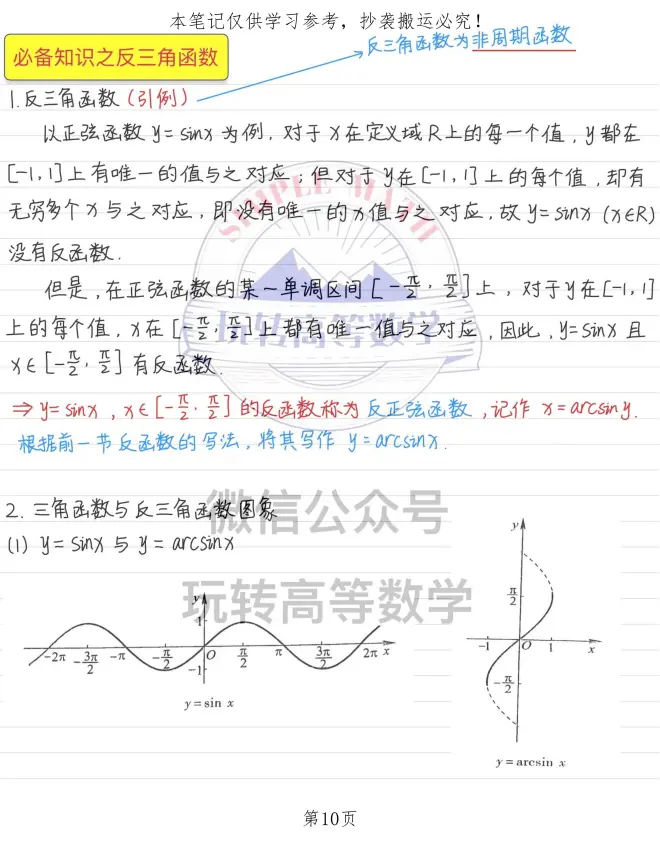 本笔记仅供学习参考，抄袭搬运必究！
必备知识之反三角函数
反三角函数为非周期函数
1.反三角函数(引例)
以正弦函数y=sinx为例，对于x在定义域R上的每一个值，y都在
[-1,1]上有唯一的值与之对应；但对于y在[-1,1]上的每个值，却有
无穷多个x与之对应，即没有唯一的x值与之对应，故y=sinx(x∈R)
没有反函数.
但是，在正弦函数的某一单调区间[-π/2，π/2]上，对于y在[-1,1]
上的每个值，x在[-π/2，π/2]上都有唯一值与之对应，因此，y=sinx且
x∈[-π/2，π/2]有反函数.
⇒y=sinx，x∈[-π/2，π/2]的反函数称为反正弦函数，记作x=arcsiny.
根据前一节反函数的写法，将其写作y=arcsinx.
SIMPLE MATH
玩转高等数学
2.三角函数与反三角函数图象
(1) y=sinx与y=arcsinx
微信公众号
玩转高等数学
y
1
-2π -3π/2 -π -π/2 O π/2 π 3π/2 2π x
-1
y=sin x
y
π/2
-1 O 1 x
-π/2
y=arcsin x
第10页